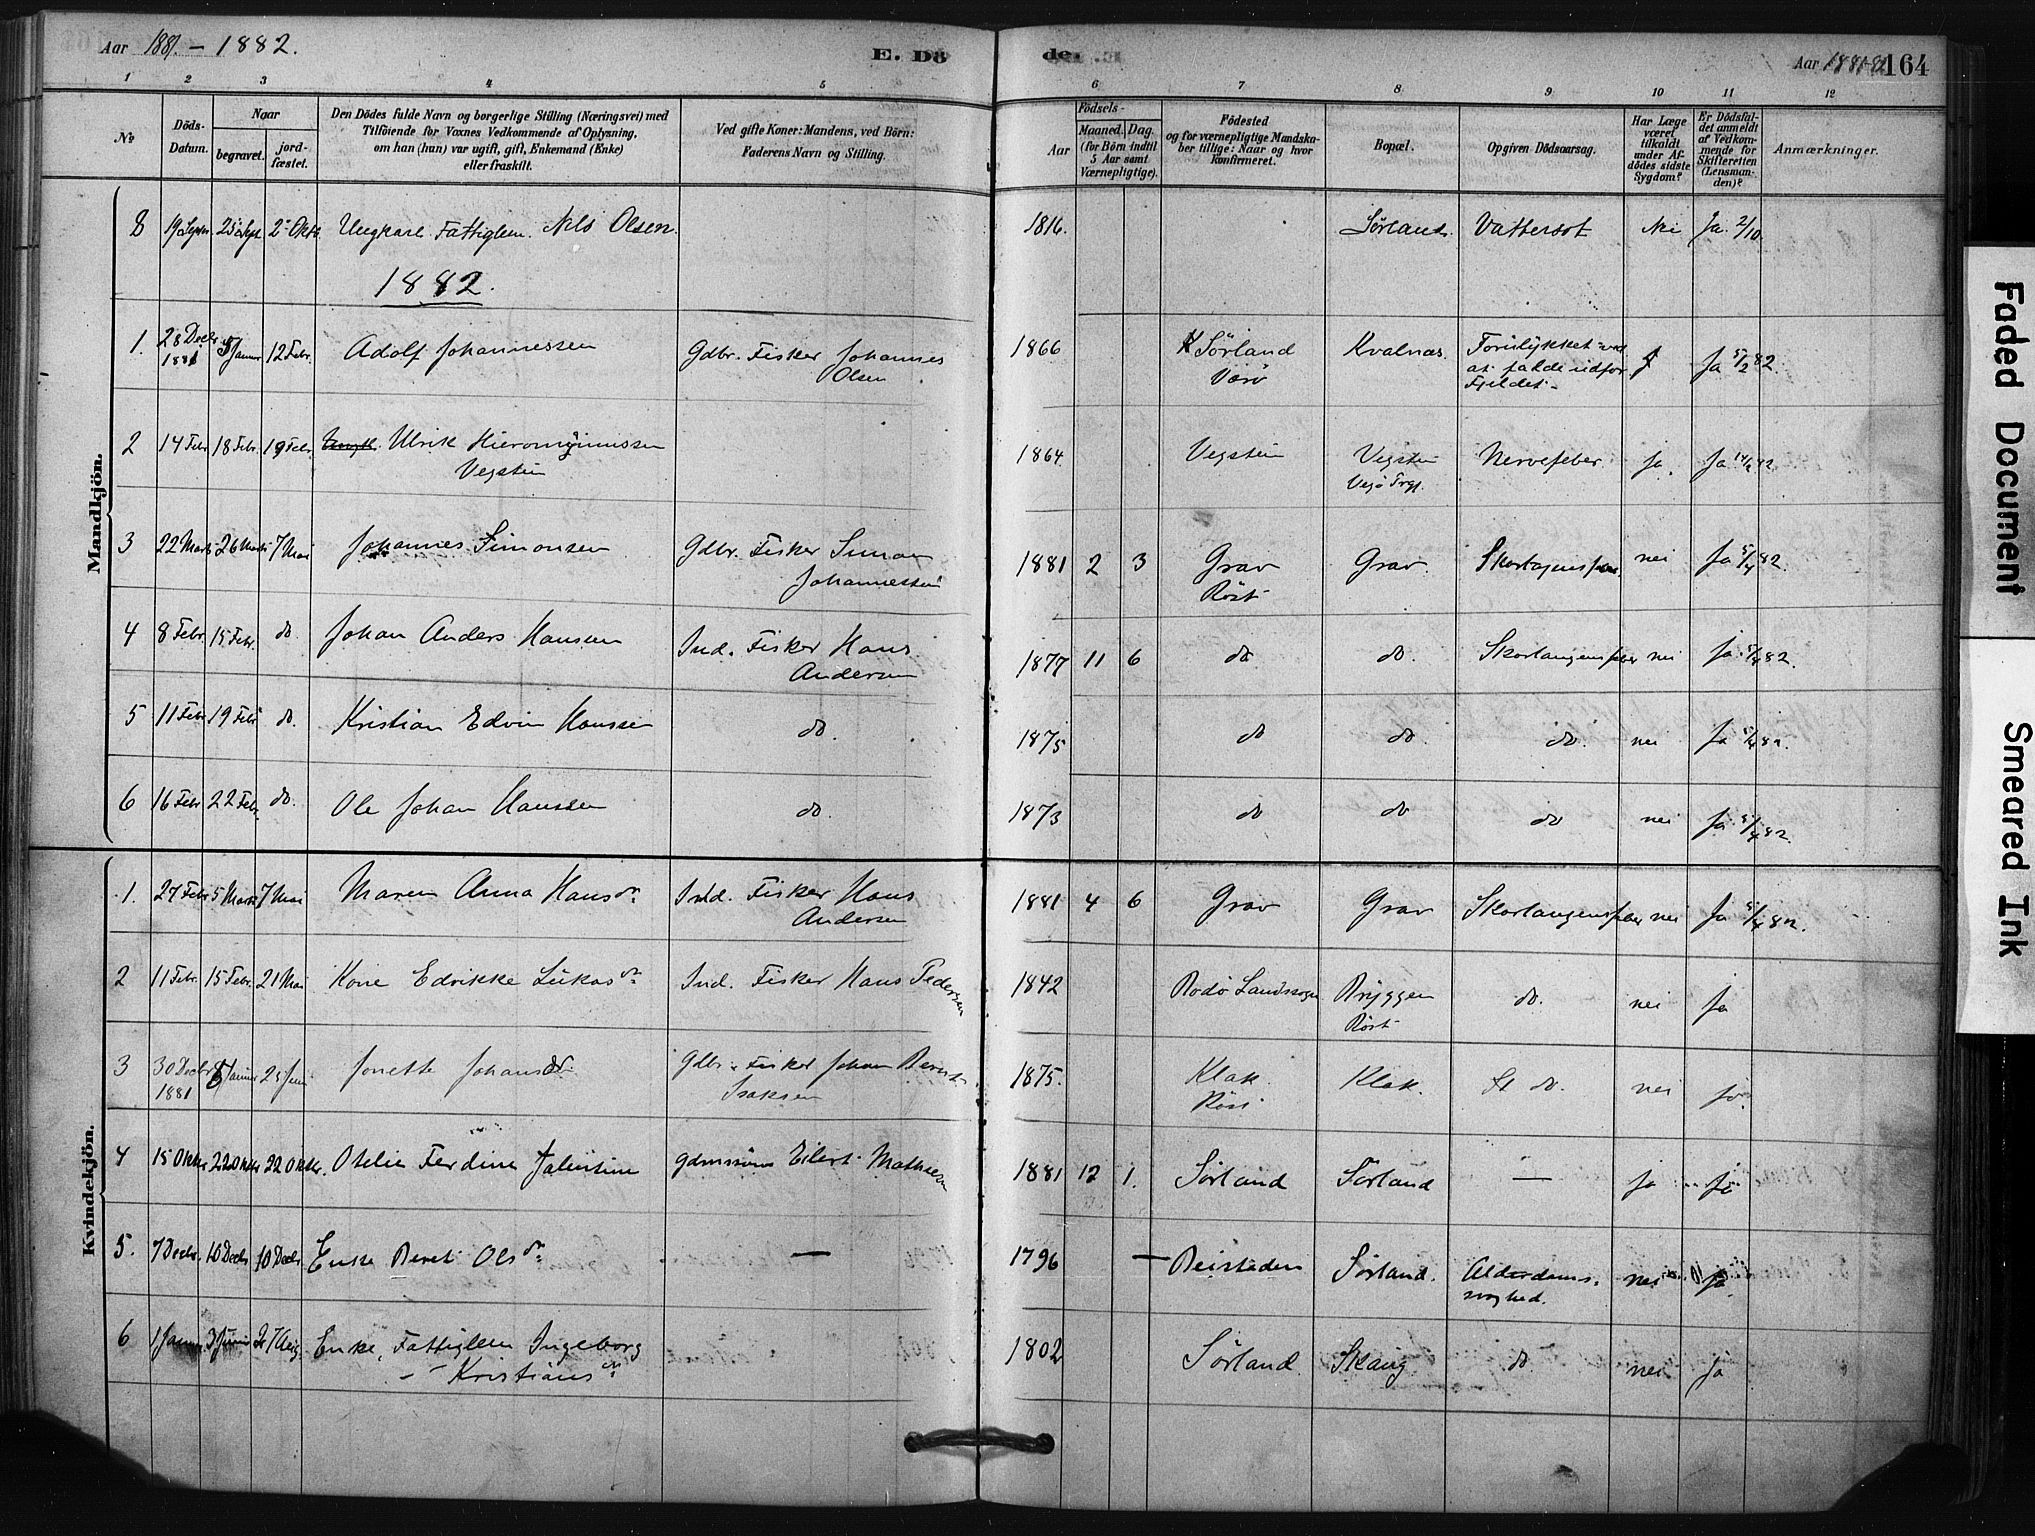 Aar 1881. - 1882.
E. Dö
de.
Aar 1881-82 164
1 2 3 4 5 6 7 8 9 10 11 12
No
Döds-Datum.
Naar
begravet.
jord-fæstet.
Den Dödes fulde Navn og borgerlige Stilling (Næringsvei) med
Tilföiende for Voxnes Vedkommende af Oplysning,
om han (hun) var ugift, gift, Enkemand (Enke)
eller fraskilt.
Ved gifte Koner: Mandens, ved Börn:
Faderens Navn og Stilling.
Födsels-
Aar
Maaned. Dag.
(for Börn indtil
5 Aar samt
Værnepligtige).
Födested
og for værnepligtige Mandska-
ber tillige: Naar og hvor
Konfirmeret.
Bopæl.
Opgiven Dödsaarsag.
Har Læge
været
tilkaldt
under Af-
dödes sidste
Sygdom?
Er Dödsfal-
det anmeldt
af Vedkom-
mende for
Skifteretten
(Lensman-
den)?
Anmærkninger.
Mandkjön.
8 19 Septr 25 Sept 2 Oktr Ungkarl Fattiglem Nils Olsen. 1816. Sørland. Vattersot Nei Ja 2/10
1882.
1. 28 Decbr 1881 5 Januar 12 Febr. Adolf Johannessen Gdbr. Fisker Johannes Olsen 1866 Sørland Værø Kvalnæs. Forulykket ved at falde udfor Fjeldet Ja 5/2 82
2 14 Febr 18 Febr. 19 Febr. Ulrik Hieronymussen Vegstein 1864 Vegstein Vegstein Vegø Prgj. Nervefeber ja. Ja 14/2 82
3 22 Marts 26 Marts 7 Mai Johannes Simonsen Gdbr. Fisker Simon Johannessen 1881 2 3 Grav Røst Grav. Skarlagensfeber nei Ja 5/4 82.
4 8 Febr. 15 Febr. do Johan Anders Hansen Ind. Fisker Hans Andersen 1877 11 6 do do. Skarlangensfeber nei Ja 5/4 82.
5 11 Febr 19 Febr do. Kristian Edvin Hanssen do. 1875 do do. do. nei Ja 5/4 82.
6 16 Febr 22 Febr. do. Ole Johan Hanssen do. 1873 do do do nei Ja 5/4 82
Kvindekjön.
1. 27 Febr 5 Marts 7 Mai Maren Anna Hansdr. Ind. Fisker Hans Andersen 1881 4 6 Grav Grav Skarlangensfeber nei Ja 5/4 82.
2 11 Febr. 15 Febr. 21 Mai Kone Edrikke Lukasdr. Ind. Fisker Hans Pedersen 1842 Rødø Landssogn Bryggen Røst do. nei Ja
3 30 Decbr 1881 8 Januar 25 Juni Jonette Johansdr. Gdbr. Fisker Johan Isaksen 1875. Klak. Røst Klak. do. nei Ja.
4 15 Oktbr 22 Oktbr 22 Oktbr. Otelie Ferdine Jalentine Gdmssøns Eilert Mathisen 1881 12 1. Sørland Sørland — ja ja
5. 7 Decbr. 10 Decbr 10 Decbr Enke Beret Olsdr. — 1796 — Reistaden Sørland. Alderdoms-svaghed. nei Ja
6 1 Januar 27 Aug. Enke, Fattiglem Ingeborg Kristiansdr. 1802 Sørland. Skaug do. nei. Ja
Faded Document
Smeared Ink